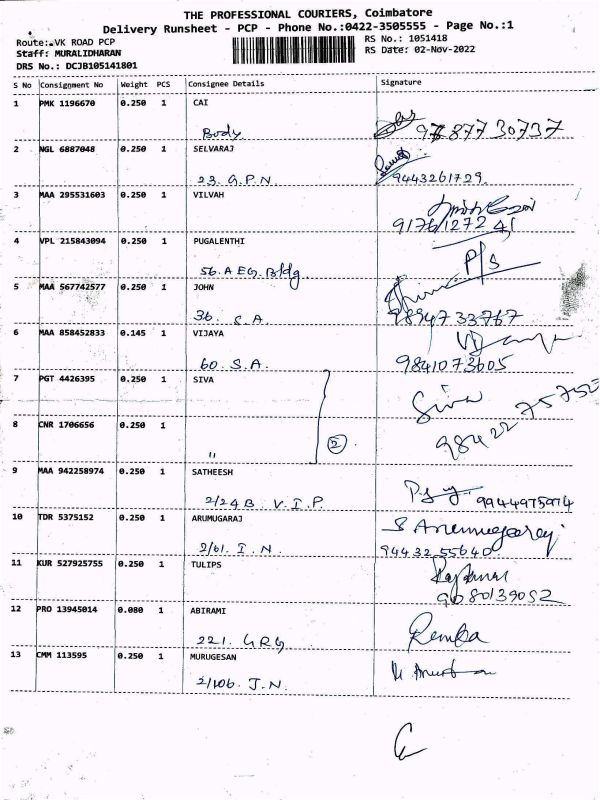 THE PROFESSIONAL COURIERS, Coimbatore
Delivery Runsheet - PCP - Phone No.:0422-3505555 - Page No.:1
Route: VK ROAD PCP
RS No.: 1051418
Staff: MURALIDHARAN
RS Date: 02-Nov-2022
DRS No.: DCJB105141801
S No Consignment No Weight PCS Consignee Details Signature
1 PMK 1196670 0.250 1 CAI
Body 9787730737
2 NGL 6887048 0.250 1 SELVARAJ
23. G.P.N. 9443261729
3 MAA 295531603 0.250 1 VILVAH
9176127241
4 VPL 215843094 0.250 1 PUGALENTHI
P/s
56. A EG. Bldg.
5 MAA 567742577 0.250 1 JOHN
36. S.A. 9894733767
6 MAA 858452833 0.145 1 VIJAYA
60. S.A. 9841073605
7 PGT 4426395 0.250 1 SIVA
Siva
8 CNR 1706656 0.250 1
" 2 9842275752
9 MAA 942258974 0.250 1 SATHEESH
2/24B. V.I.P. 9944975974
10 TDR 5375152 0.250 1 ARUMUGARAJ
S Arumugaraj
2/61. I.N. 9443255640
11 KUR 527925755 0.250 1 TULIPS
9080139052
12 PRO 13945014 0.080 1 ABIRAMI
221. GRG Remba
13 CMM 113595 0.250 1 MURUGESAN
2/106. J.N.